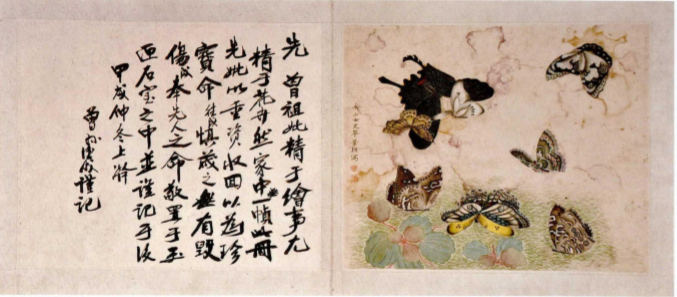 先 曾祖妣精于繪事尤
精于花卉然家中一幀此冊
先妣以重資收回以為珍
寶命 慎藏之無有毀
傷 奉先人之命敬置于玉
匣石室之中並謹記于後
甲戌仲冬上澣
曾 謹記